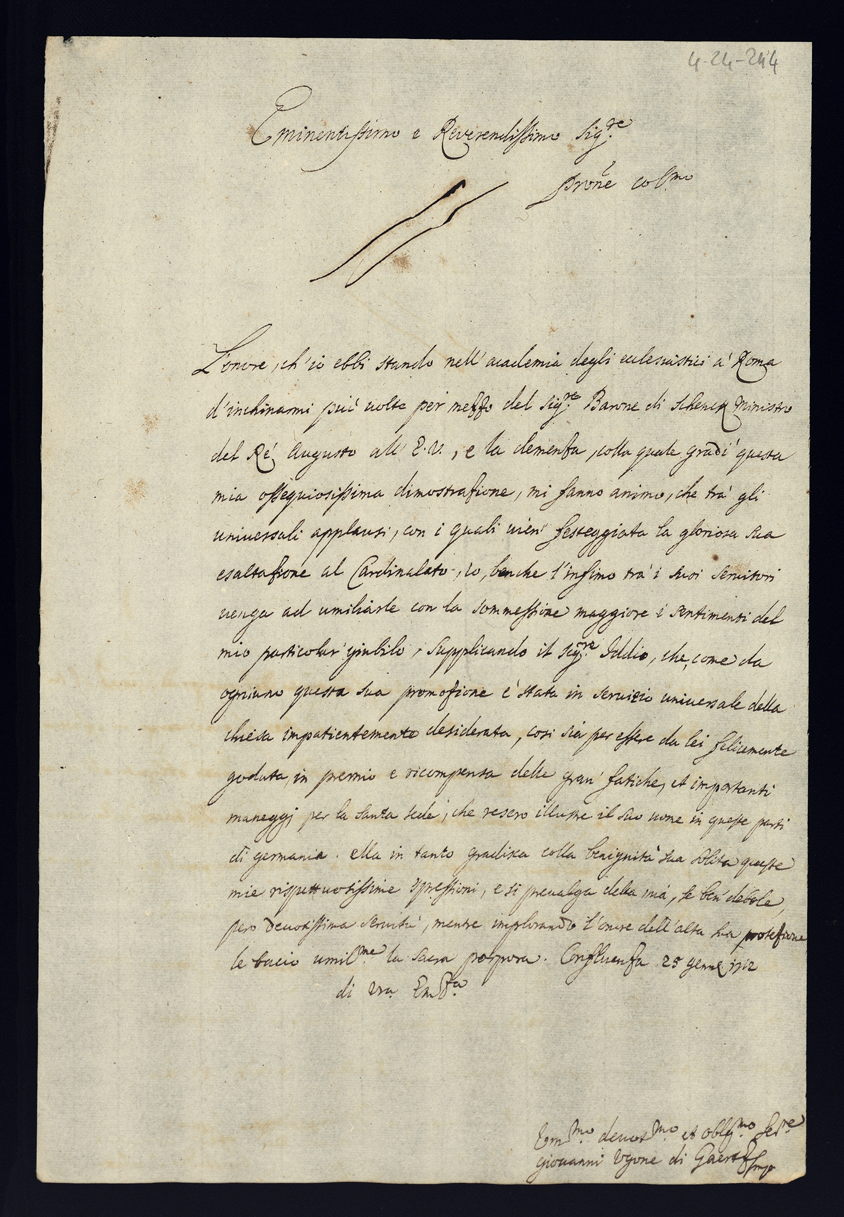 4-24-244
Eminentissimo e Reverendissimo Sig.re
Prone col.mo
L'onore, ch'io ebbi stando nell'academia degli eclesiastici a' Roma
d'inchinarmi piu' uolte per mezzo del Sig.re Barone di Schenck Ministro
del Re' Augusto all'E.V., e la clemenza, colla quale gradi' questa
mia ossequiosissima dimostrazione, mi fanno animo, che tra' gli
uniuersali applausi, con i quali uien' festeggiata la gloriosa sua
esaltazione al Cardinalato, io, benche l'infimo tra' i suoi seruitori
uenga ad umiliarle con la sommessione maggiore i sentimenti del
mio particolar' giubilo, supplicando il Sig.re Iddio, che, come da
ogniuno questa sua promozione e' stata in seruizio uniuersale della
chiesa impatientemente desiderata, cosi sia per essere da lei felicemente
goduta, in premio e ricompensa delle gran' fatiche, et importanti
maneggi per la santa sede, che resero illustre il suo nome in queste parti
di germania. ella in tanto gradisca colla benignita' sua solita queste
mie rispettuosissime espressioni, e si preualga della mia, se ben' debole,
pero deuotissima seruitu', mentre implorando l'onore dell'alta sua protezione
le bacio umil.me la sacra porpora. Confluenza 25 genn. 1712
di Vra Em.za
deuot.mo et oblig.mo Ser.re
giouanni Vgone di